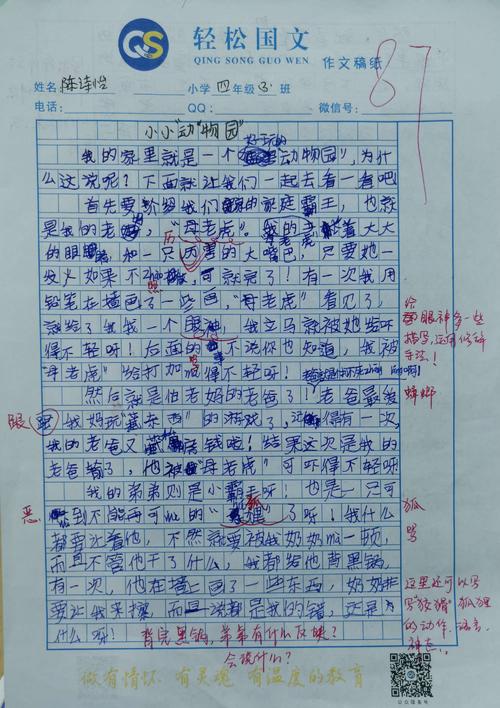 轻松国文
QING SONG GUO WEN
作文稿纸
87
姓名 陈诗怡 小学 四年级 3 班
电话: QQ: 微信号:
小小"动"物园"
我的家里就是一个好玩的"动物园",为什
么这说呢?下面就让我们一起去看一看吧
首先要介绍我们的家庭霸王,也就
是我的老妈,"母老虎"。我的母老虎着大大
的眼,加一只厉害的大嘴巴,只要她一
发火如果不,可就完了!有一次我用
铅笔在墙画了一些画,"母老虎"看见了,
就给了我一个眼神,我立马就被她给吓
得不轻呀!后面的不说你也知道,我被
母老虎"给打加得不轻呀!
绘
眼神多一些
描写,运用修辞
手法!
然后就是他老妈的老爸了!老爸最爱
蟑螂
眼
我妈玩"藏东西"的游戏了,得有一次,
我的老爸又藏钱啦!结果这次是我的
老爸输了,他被"母老虎"可吓得不轻呀
我的弟弟则是小霸王呀!也是一只可
恶到不能再可me的"狸"了呀!我什么
恶
狐
都要让着他,不然就要被我奶奶mà一顿,
骂
而且不管他干了什么,我都给他背黑锅,
有一次,他在墙上画了一些东西,奶奶非
要让我来擦,而且说都是我的错,这是为
什么呀!
背完黑锅,弟弟有什么反映?
会谈什么?
这里还可以写
写"狡猾"狐狸
的动作、语言、
神态。
做有情怀 有灵魂 有温度的教育
公众服务号